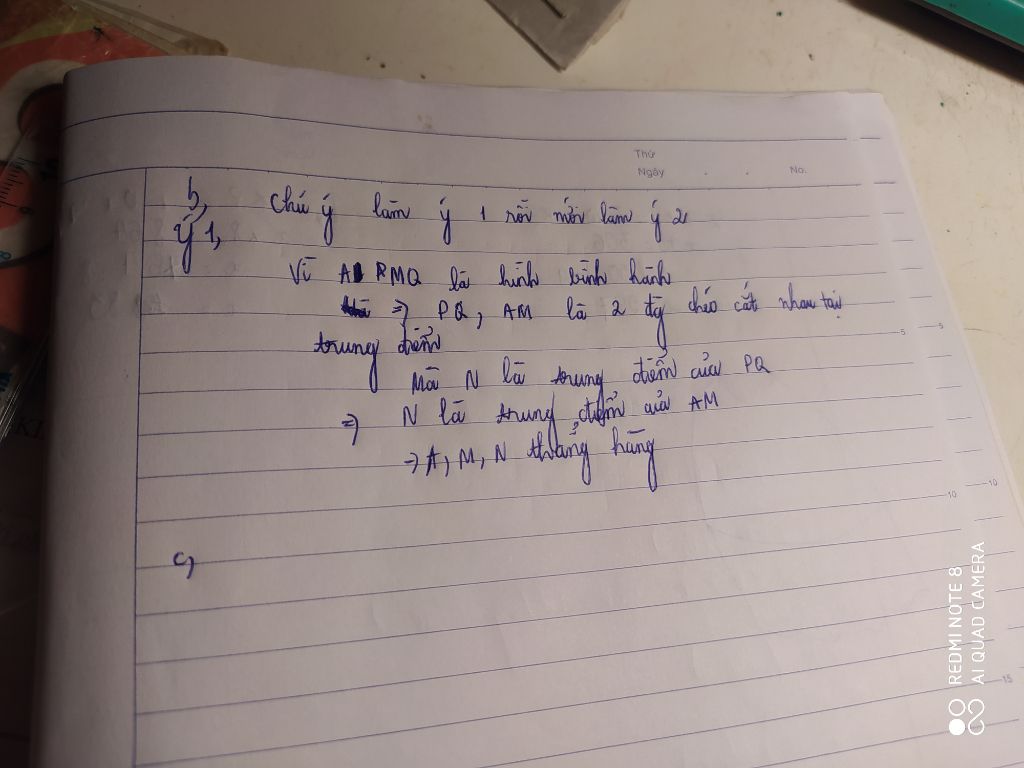 Thứ
Ngày . . No.
b, Chú ý làm ý 1 rồi mới làm ý 2
Ý 1,
Vì A PMQ là hình bình hành
=> PQ, AM là 2 đg chéo cắt nhau tại
trung điểm
Mà N là trung điểm của PQ
=> N là trung điểm của AM
-> A, M, N thẳng hàng
c,
5
5
10
10
15
REDMI NOTE 8
AI QUAD CAMERA